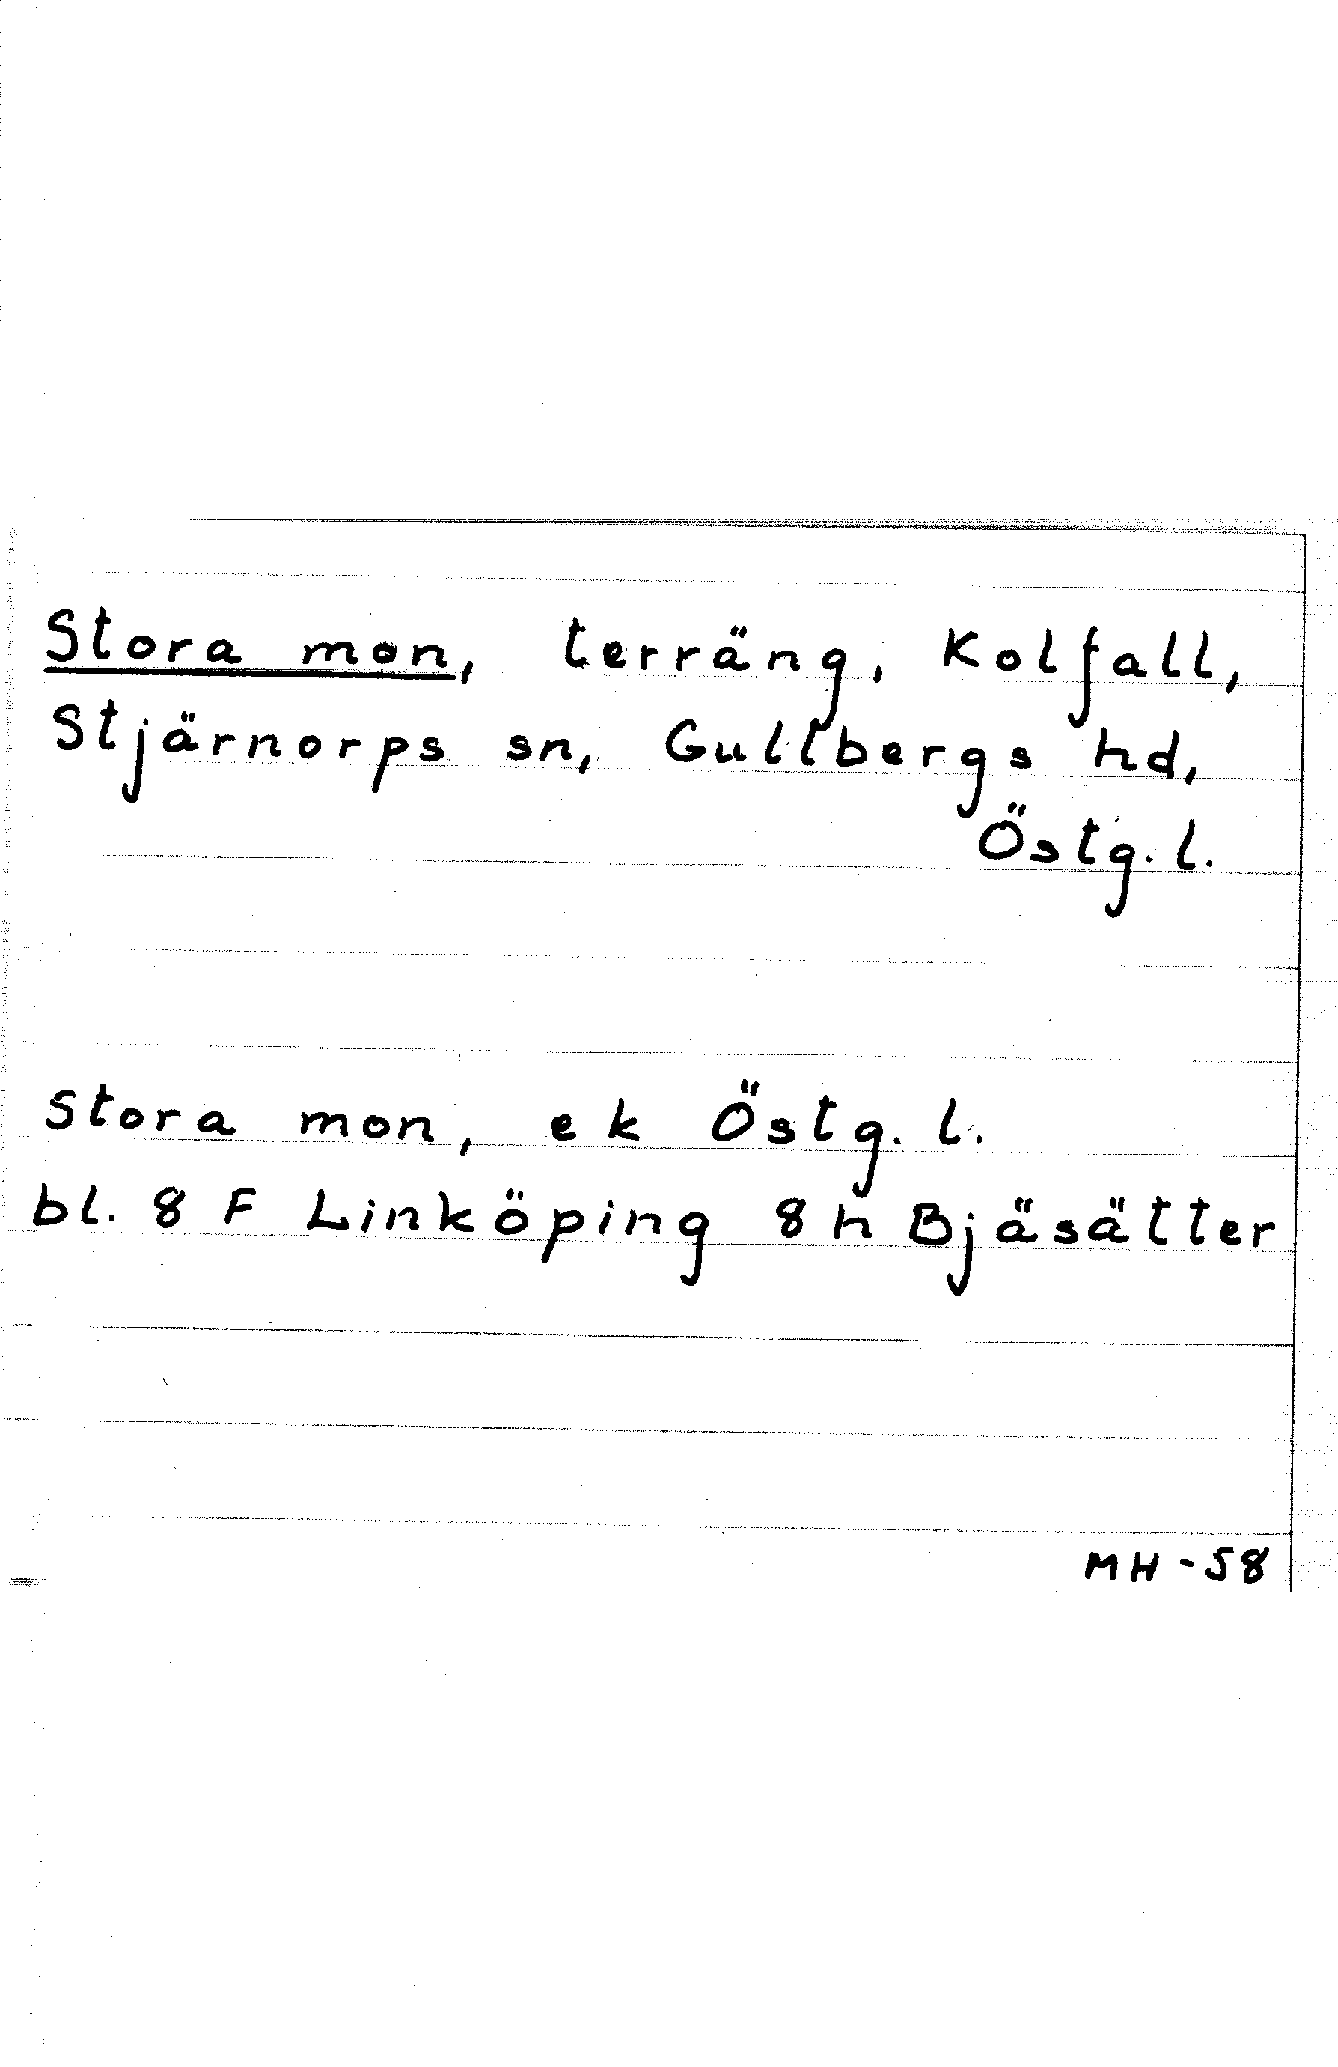 Stora mon, terräng, Kolfall,
Stjärnorps sn, Gullbergs hd,
Östg. l.
Stora mon, ek Östg. l.
bl. 8 F Linköping 8 h Bjäsätter
MH-58